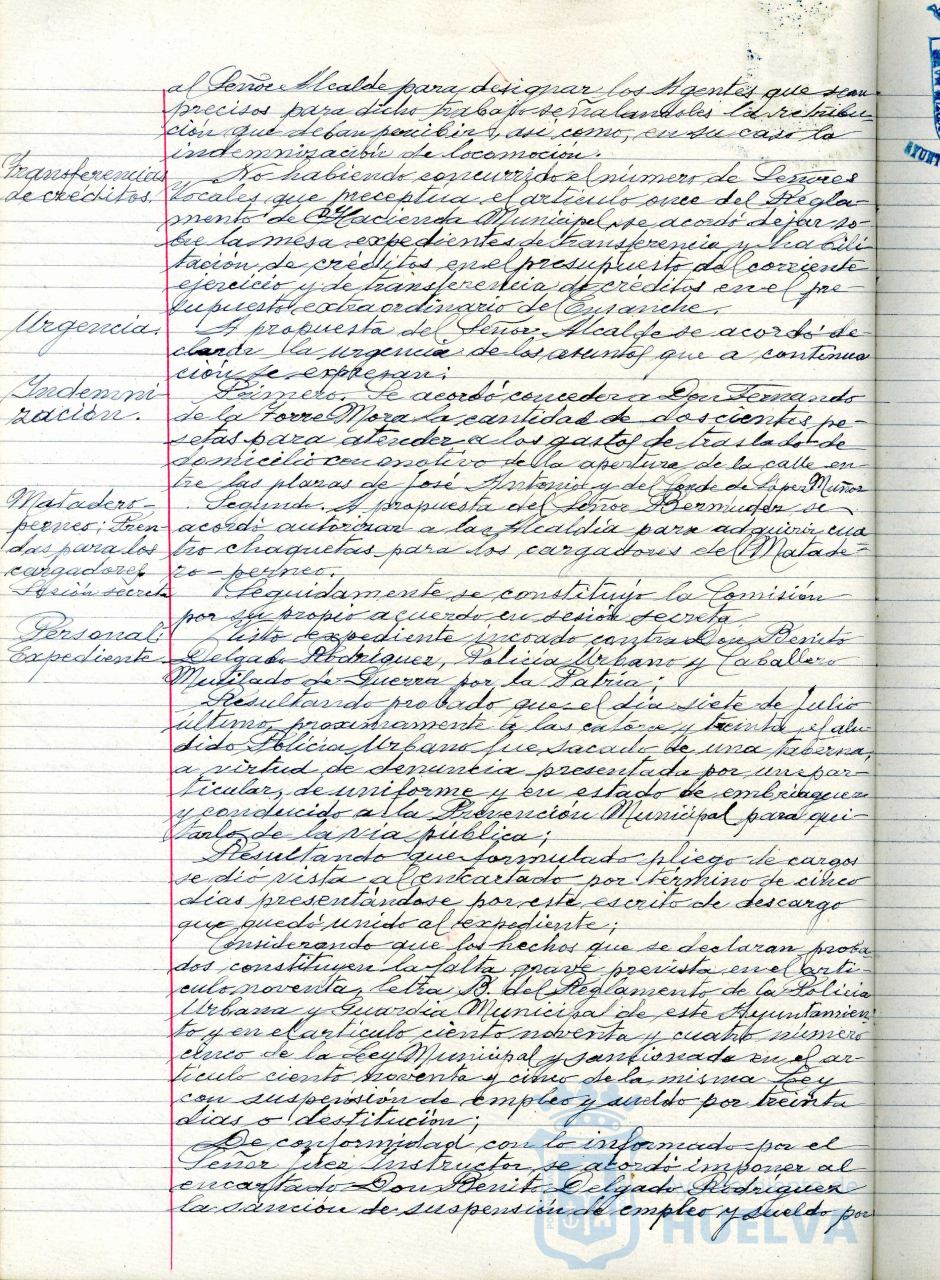 al Señor Alcalde para designar los Agentes que sean
precisos para dicho trabajo señalandoles la retribu-
ción que deban percibir, asi como, en su caso la
indemnización de locomoción.
Transferencias
de créditos.
No habiendo concurrido el número de Señores
Vocales que preceptúa el artículo once del Regla-
mento de Hacienda Municipal se acordó dejar so-
bre la mesa expedientes de transferencia y habili-
tación de créditos en el presupuesto del corriente
ejercicio y de transferencia de créditos en el pre-
supuesto extraordinario de Ensanche.
Urgencia.
A propuesta del Señor Alcalde se acordó de-
clarar la urgencia de los asuntos que a continua-
ción se expresan:
Indemni-
zación.
Primero. Se acordó conceder a Don Fernando
de la Torre Mora la cantidad de doscientas pe-
setas para atender a los gastos de traslado de
domicilio con motivo de la apertura de la calle en-
tre las plazas de José Antonio y del Conde de López Muñoz
Matadero-
perneo: Pren-
das para los
cargadores
Segundo. A propuesta del Señor Bermúdez se
acordó autorizar a la Alcaldía para adquirir cua-
tro chaquetas para los cargadores de Matade-
ro-perneo.
Sesión secreta
Seguidamente se constituyó la Comisión
por su propio acuerdo en sesión secreta.
Personal:
Expediente
Visto expediente incoado contra Don Benito
Delgado Rodríguez, Policía Urbano y Caballero
Mutilado de Guerra por la Patria:
Resultando probado que el día siete de Julio
último, proximamente a las catorce y treinta, el alu-
dido Policía Urbano fue sacado de una taberna,
a virtud de denuncia presentada por un par-
ticular, de uniforme y en estado de embriaguez
y conducido a la Prevención Municipal para qui-
tarlo de la vía pública;
Resultando que formulado pliego de cargos
se dió vista al encartado por término de cinco
días presentándose por este escrito de descargo
que quedó unido al expediente;
Considerando que los hechos que se declaran proba-
dos constituyen la falta grave prevista en el artí-
culo noventa, letra B. del Reglamento de la Policía
Urbana y Guardia Municipal de este Ayuntamien-
to y en el artículo ciento noventa y cuatro número
cinco de la Ley Municipal y sancionada en el ar-
tículo ciento noventa y cinco de la misma Ley
con suspensión de empleo y sueldo por treinta
días o destitución;
De conformidad con lo informado por el
Señor Juez Instructor, se acordó imponer al
encartado Don Benito Delgado Rodríguez
la sanción de suspensión de empleo y sueldo por
Ayuntamiento de
HUELVA